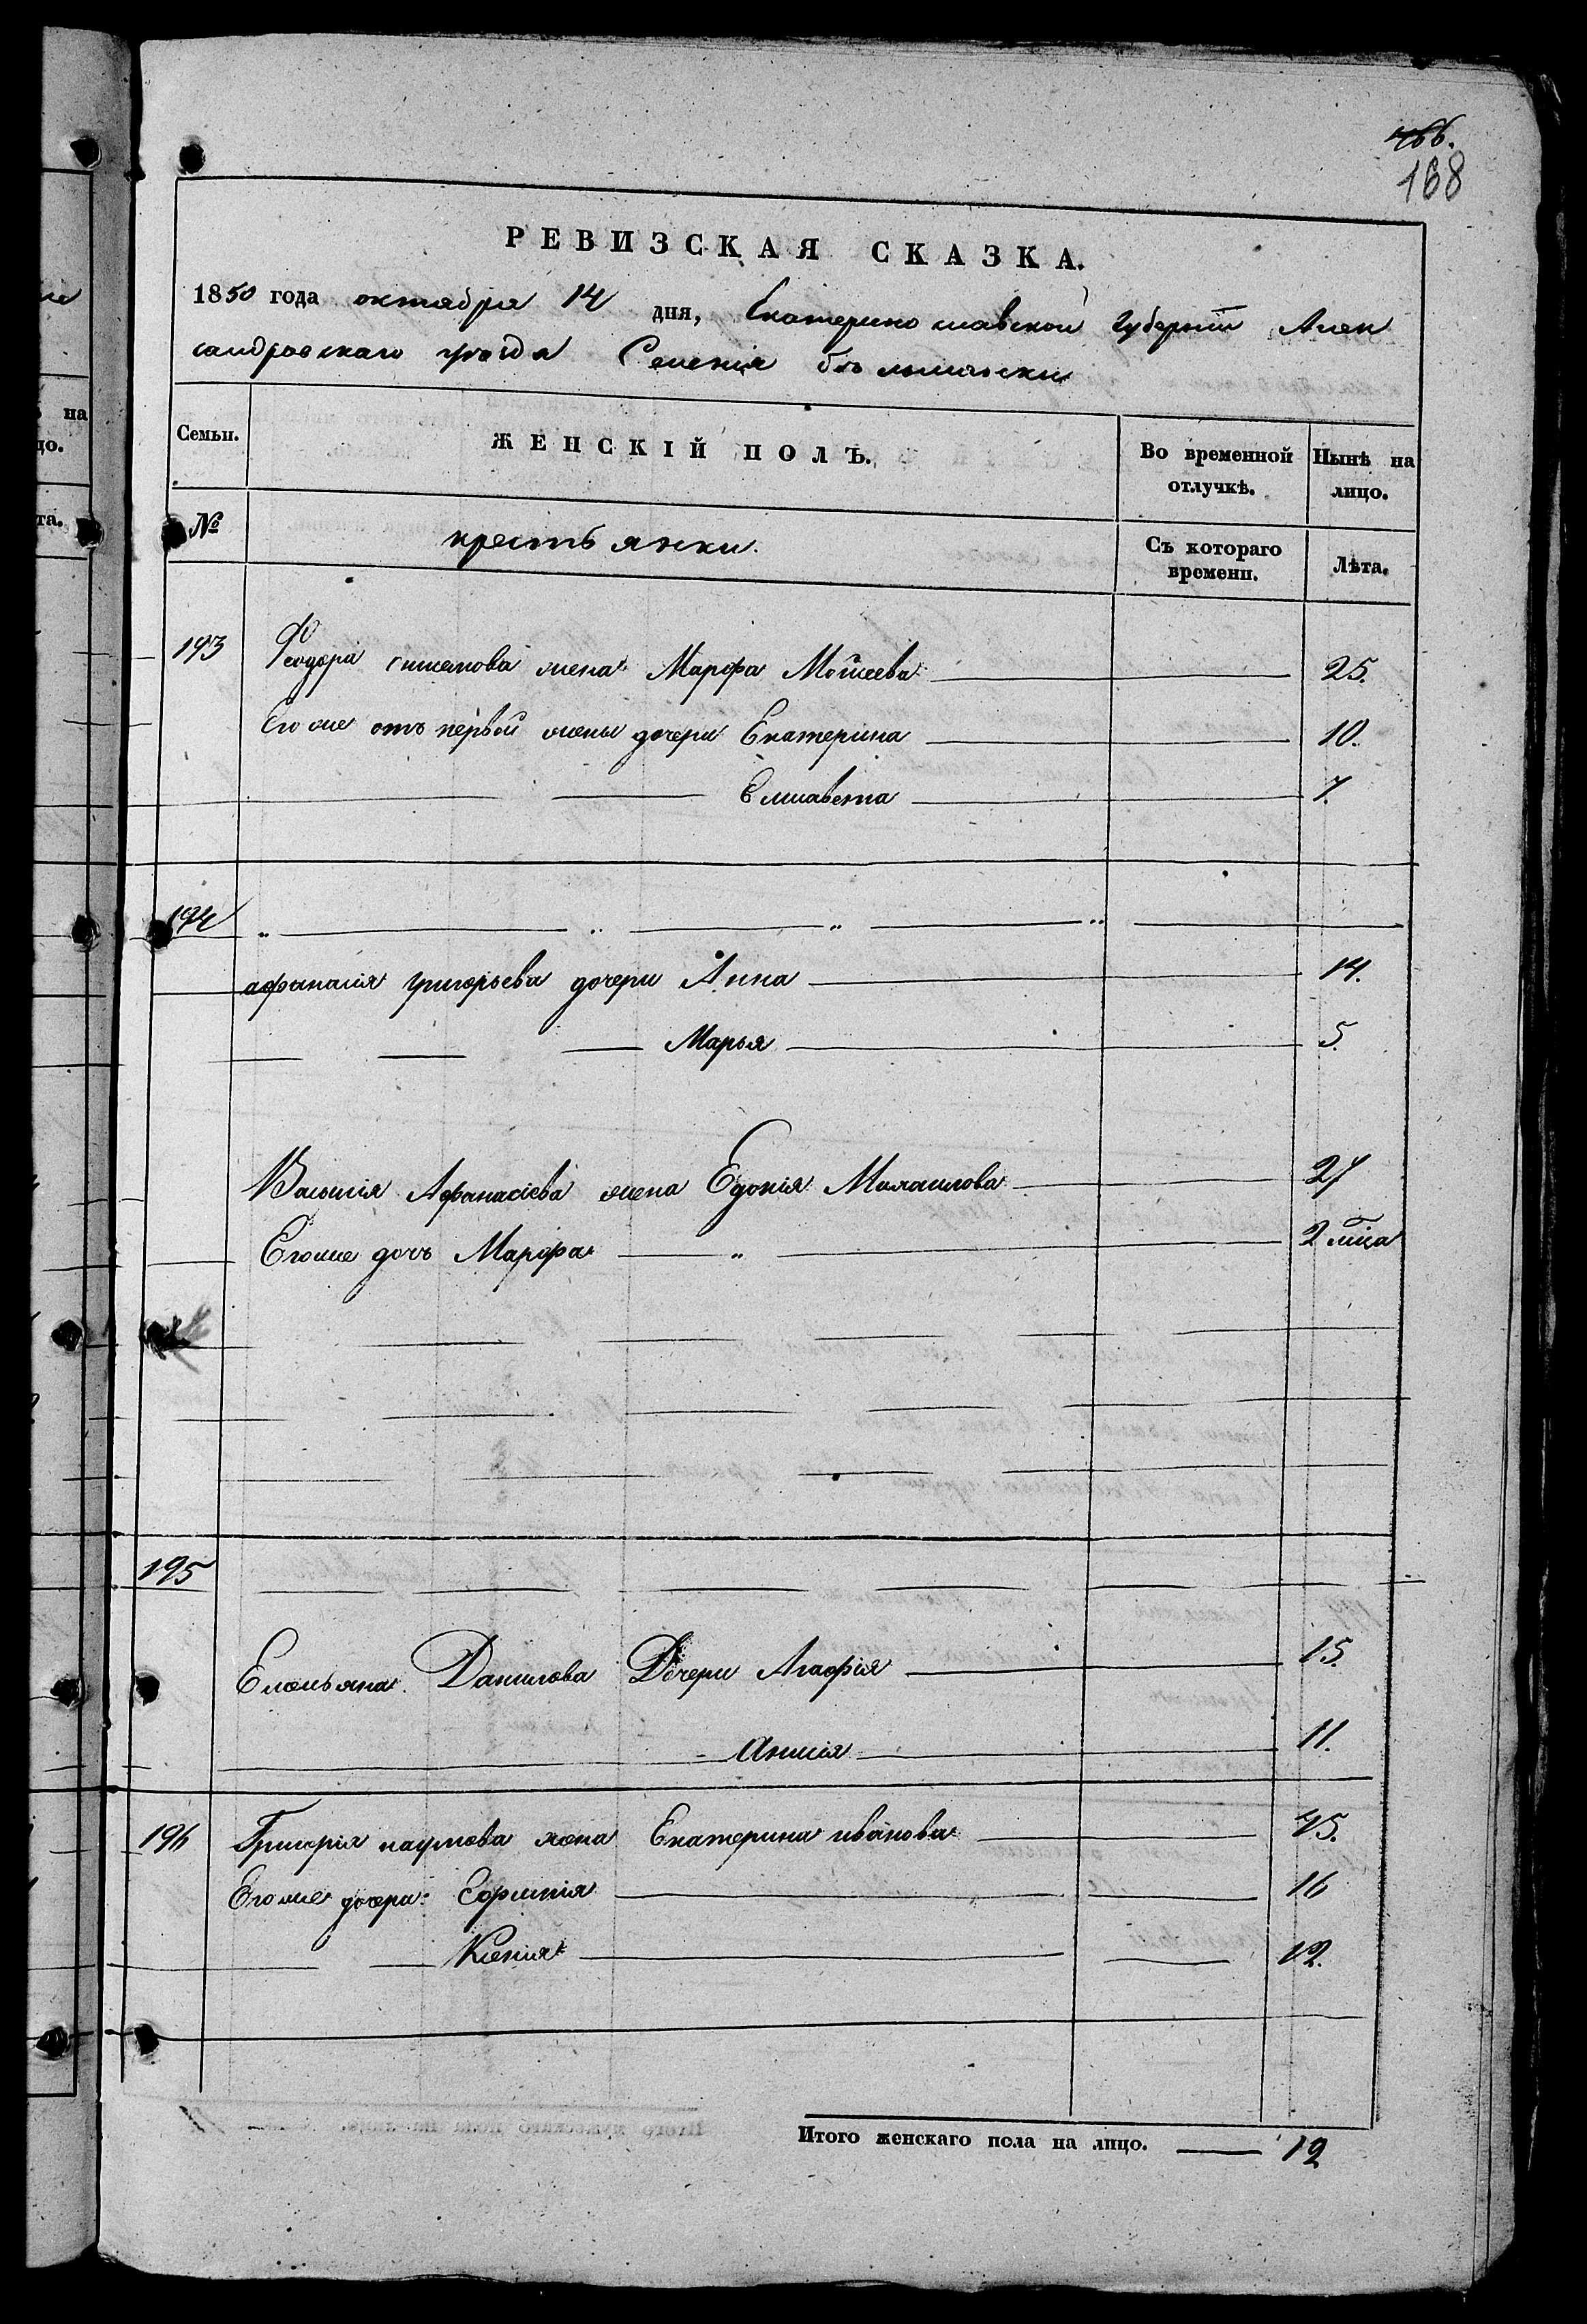 466.
168
РЕВИЗСКАЯ СКАЗКА.
1850 года октября 14 дня, Екатеринославской губернии Алек
сандровскаго уезда Селения
Семьи. ЖЕНСКІЙ ПОЛЪ. Во временной отлучкѣ. Нынѣ на лицо.
№ крестьянки. Съ котораго времени. Лѣта.
193 Феодора жена Марфа Моисеева 25.
Его же отъ первой жены дочери Екатерина 10.
Елисавета 7.
194
афанасия григорьева дочери Анна 14.
Марья 5.
Василия Афанасіева жена 27
Егоже дочь Марфа 2 мца
195
Емельяна Данилова Дочери Агафия 15.
Анисія 11.
196 Григорія наумова жена Екатерина иванова 45.
Егоже дочери: Ефимія 16
Ксенія 12.
Итого женскаго пола на лицо. 12
на
цо.
та.